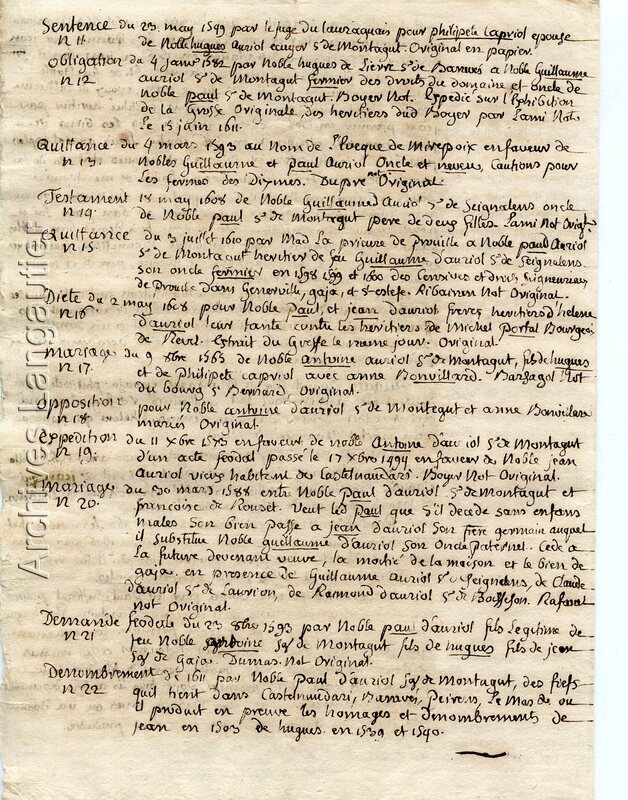 Sentence du 23 may 1599 par le juge du lauragais pour philipete capriol epouse
n 11 de Noble hugues auriol ecuyer Sr de Montagut. Original en papier.
Obligation du 4 janv 1582 par Noble hugues de Sr de a Noble Guillaume
n 12 auriol Sr de Montagut fermier des droits du domaine et oncle de
noble paul Sr de Montagut. Boyer Not. Expedié sur l'Exhibition
de la Grosse Originale des heritiers dud Boyer par Lami Not.
Le 18 juin 1611.
Quittance du 4 mars 1593 au Nom de l'Eveque de Mirepoix en faveur de
n 13. Nobles Guillaume et paul Auriol Oncle et neveu, Cautions pour
Les fermes des Dixmes. Dupre not Original
Testament 18 may 1608 de Noble Guillaume d'Auriol Sr de Seignalens oncle
n 14. de Noble paul Sr de Montagut pere de deux filles. Lami Not Origl.
Quittance du 3 juillet 1610 par Mad La prieure de Prouille a Noble paul Auriol
n 15 Sr de Montagut heritier de feu Guillaume d'auriol Sr de Seignalens
Son oncle fermier en 1598 1599 et 1600 des Censives et droits Seigneuriaux
de Prouille dans Generville, gaja, et St estefe. Ribairan Not Original.
Diete du 2 may 1618 pour Noble Paul, et jean d'auriol freres heritiers d'helene
n 16. d'auriol leur tante contre les heritiers de Michel Portal Bourgeois
de Revel. Extrait du Greffe le meme jour. Original.
Mariage du 9 8bre 1565 de Noble antoine auriol Sr de Montagut, fils de hugues
n 17. et de Philipete capriol avec anne Bonvillard. Barsagol Not
du bourg St Bernard, Original.
Opposition pour Noble antoine d'auriol Sr de Montegut et anne
n 18. mariés Original.
Expedition du 11 Xbre 1583 en faveur de noble Antoine d'auriol Sr de Montagut
n 19. d'un acte feodal passé le 17 Xbre 1494 en faveur de Noble jean
Auriol vieux habitent de Castelnaudari. Boyer Not Original.
Mariage du 30 mars 1588 entre Noble Paul d'auriol Sr de Montagut et
n 20. francoise de Rouset. Veut led Paul que s'il decede sans enfans
males Son bien passe a jean d'auriol Son frere germain auquel
il substitue Noble guillaume d'auriol Son Oncle Paternel. Cede a
La future devenant veuve, la moitié de la maison et le bien de
gaja. en presence de Guillaume Auriol Sr de Seignalens, de Claude
d'auriol Sr de Laurion, de Raimond d'auriol Sr de
not Original.
Demande feodale du 23 8bre 1593 par Noble paul d'auriol fils Legitime de
n 21 feu Noble antoine Sgr de Montagut fils de hugues fils de jean
Sgr de Gaja. Dumas Not Original.
Denombrement de 1611 par Noble Paul d'auriol Sgr de Montagut, des fiefs
n 22. quil tient dans Castelnaudari, Peirens, Le Mas de ou
il produit en preuve les homages et denombrements de
jean en 1503 de hugues en 1539 et 1540.
Archives Langautier